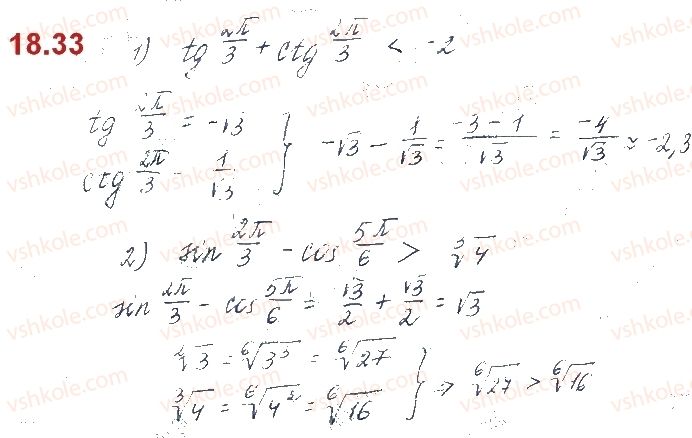 18.33
1) tg 2π/3 + ctg 2π/3 < -2
tg 2π/3 = -√3
ctg 2π/3 - 1/√3 } -√3 - 1/√3 = (-3-1)/√3 = -4/√3 ≈ -2,3
2) sin 2π/3 - cos 5π/6 > ∛4
sin 2π/3 - cos 5π/6 = √3/2 + √3/2 = √3
²√3 = ⁶√3³ = ⁶√27
³√4 = ⁶√4² = ⁶√16 } ⇒ ⁶√27 > ⁶√16
vshkole.com